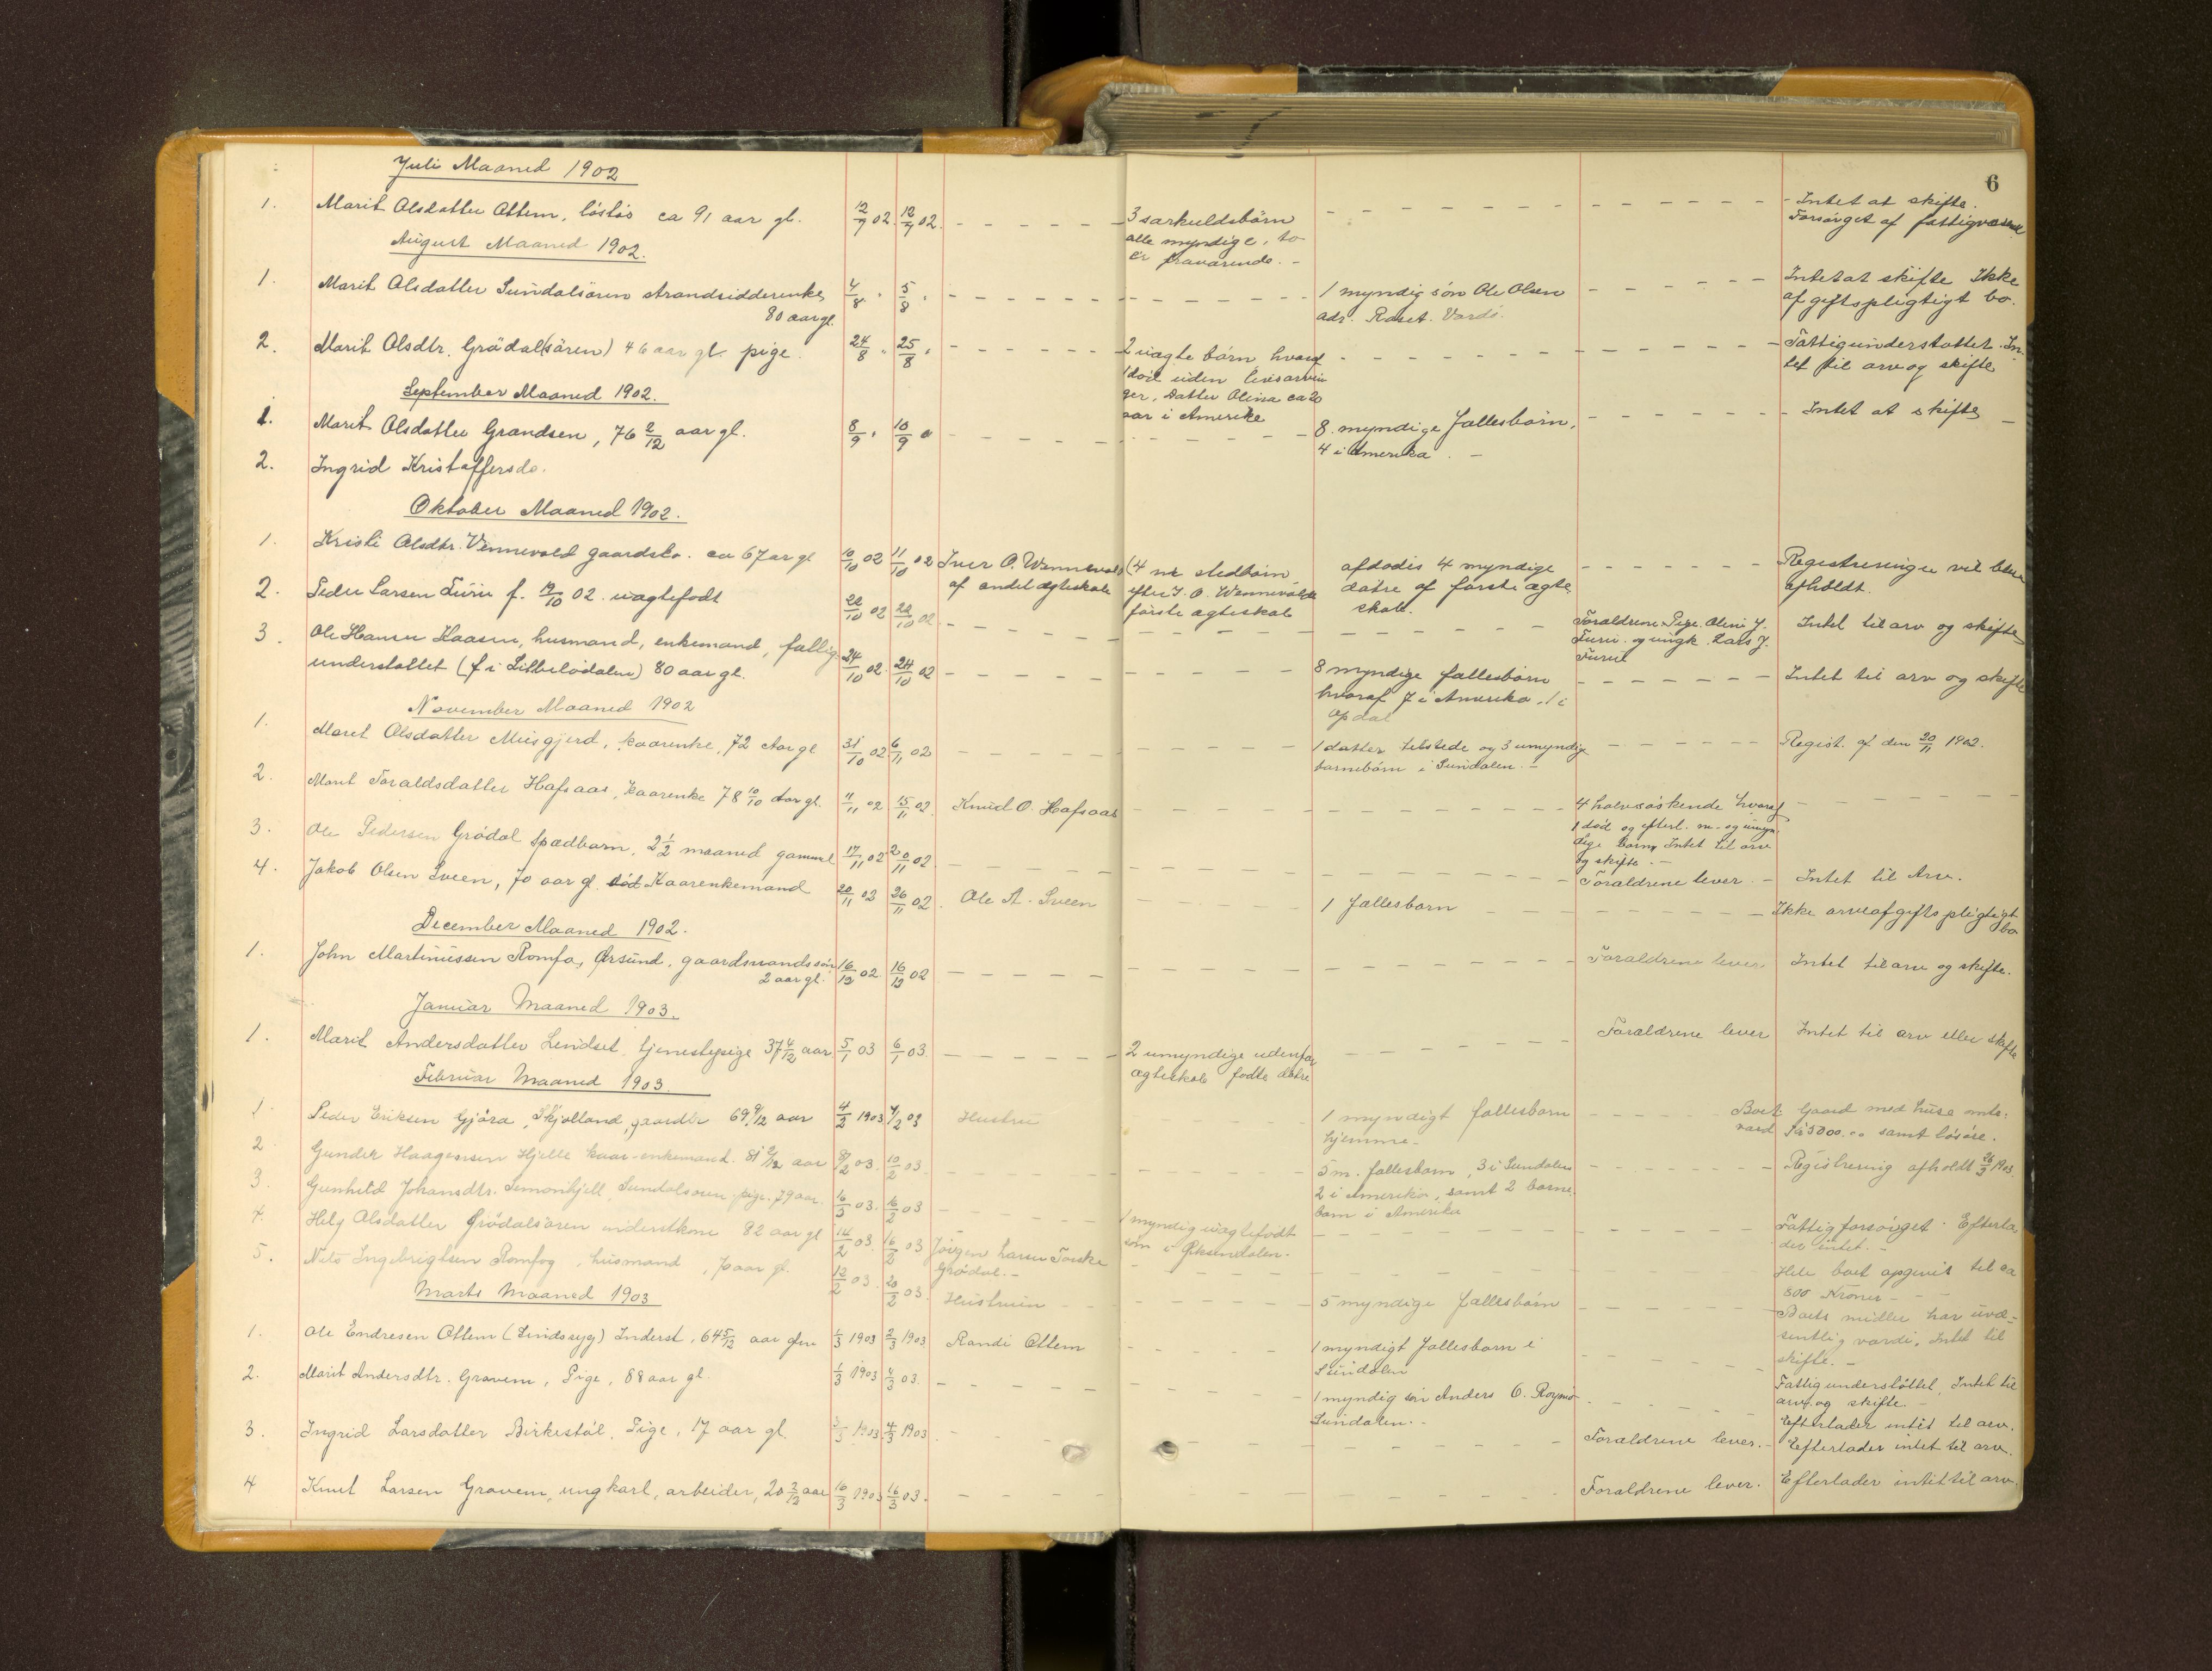 6
Juli Maaned 1902
1. Marit Olsdatter Ottem, löslös ca 91 aar gl. 12/7 02. 12/7 02. 3 særkuldsbörn - Intet at skifte.
alle myndige, to Forsörget af fattigvæsenet
er fraværende. -
August Maaned 1902.
1. Marit Olsdatter Sundalsören strandsidderenke, 4/8 " 5/8 " 1 myndig sön Ole Olsen Intet at skifte Ikke
80 aar gl. adr. Vardö. afgiftspligtigt bo.
2. Marit Olsdtr. Grödal(sören) 46 aar gl. pige. 24/8 " 25/8 " 2 uægte börn hvoraf Fattigunderstöttet. In-
1 död uden livsarvin tet til arv og skifte
ger, Datter Olina ca 20
aar i Amerika
September Maaned 1902.
1. Marit Olsdatter Grandsen, 76 2/12 aar gl. 8/9 " 10/9 " 8 myndige fællesbörn, Intet at skifte
4 i Amerika. -
2. Ingrid Kristoffersdo.
Oktober Maaned 1902.
1. Kristi Olsdtr. Vennevold gaardsko. ca 67 aar gl 10/10 02 11/10 02 Iver O. Wennevold (4 stedbörn afdödis 4 myndige Registreringen vil blive
af andet ægteskab efter I. O. Wennevolds döttre af förste ægte afholdt.
förste ægteskab skab.
2. Peder Larsen Furu f. 19/10 02 uægtefödt 22/10 02 22/10 02 Forældrene Pige Oline J. Intet til arv og skifte
Furu og ungk. Lars J.
Furu
3. Ole Hansen Haasen, husmand, enkemand, fattig- 24/10 02. 24/10 02 8 myndige fællesbörn Intet til arv og skifte
understöttet (f i Litledalen) 80 aar gl. hvoraf 7 i Amerika, 1 i
Opdal
November Maaned 1902
1. Marit Olsdatter Musgjerd, kaarenke, 72 Aar gl 31/10 02 6/11 02 1 datter tilstede og 3 umyndige Regist. af den 20/11 1902.
barnebörn i Sundalen. -
2. Marit Toraldsdatter Hafsaas, Kaarenke 78 10/10 Aar gl. 11/11 02 15/11 02. Knud O. Hafsaas 4 halvsöskende hvoraf
1 död og efterl. m- og umyn
dige börn, Intet til arv
og skifte. -
3. Ole Pedersen Grödal Spædbarn, 2 1/2 maaned gammel 17/11 02 20/11 02. Forældrene lever - Intet til Arv.
4. Jakob Olsen Sveen, 70 aar gl. Kaarenkemand 20/11 02 26/11 02. Ole A. Sveen 1 fællesbarn Ikke arveafgiftspligtigt
bo
December Maaned 1902.
1. John Martinussen Romfo, Örsund, gaardmandssön 16/12 02. 16/12 02 Forældrene lever. Intet til arv og skifte.
2 aar gl.
Januar Maaned 1903.
1. Marit Andersdatter Lendset, tjenestepige 37 4/12 aar. 5/1 03 6/1 03. 2 umyndige udenfor Forældrene lever Intet til arv eller skifte
ægteskab fødte döttre
Februar Maaned 1903.
1. Peder Eriksen Gjöra, Skjölland, gaardbr 69 9/12 aar 4/2 1903 7/2 03 Hustru 1 myndigt fællesbarn Boet Gaard med huse
hjemme. værd 5000.00 samt lösöre.
2 Gunder Haagensen Hjelle kaar-enkemand. 81 2/12 aar 8/2 03. 10/2 03. 5 m. fællesbarn, 3 i Sundalen Registrering afholdt 26/3 1903.
2 i Amerika, samt 2 barne
barn i Amerika
3. Gunhild Johansdtr. Simonhjell, Sundalsören pige 79 aar. 16/2 03. 16/2 03 1 myndig uægtefödt Fattigforsörget. Efterla-
sön i Öksendalen. der intet. -
4. Helg Olsdatter Grödalsören inderstkone 82 aar gl 14/2 03. 16/2 03. Jörgen Larsen Torske Hele boet opgivet til ca
Grödal. - 800 Kroner -
5. Nils Ingebrigtsen Romfog, husmand, 70 aar gl. 12/2 03. 20/2 03. Hustruen 5 myndige fællesbörn Boets midler har uvæ-
sentlig værdi, Intet til
skifte. -
Marts Maaned 1903
1. Ole Endresen Ottem (Sindssyg) Inderst, 64 5/12 aar 1/3 1903 2/3 1903. Randi Ottem 1 myndigt fællesbarn i Fattigunderstöttet, Intet til
Sundalen arv og skifte. -
2. Marit Andersdtr. Gravem, Pige, 88 aar gl. 1/3 1903 4/3 03. 1 myndig sön Anders O. Röymo Efterlader intet til arv.
Sundalen. -
3. Ingrid Larsdatter Birkestöl, Pige, 17 aar gl. 3/3 1903. 4/3 1903 Forældrene lever. - Efterlader intet til arv.
4 Knut Larsen Gravem, ungkarl, arbeider, 20 2/12 aar 16/3 1903 16/3 03. Forældrene lever. Efterlader intet til arv